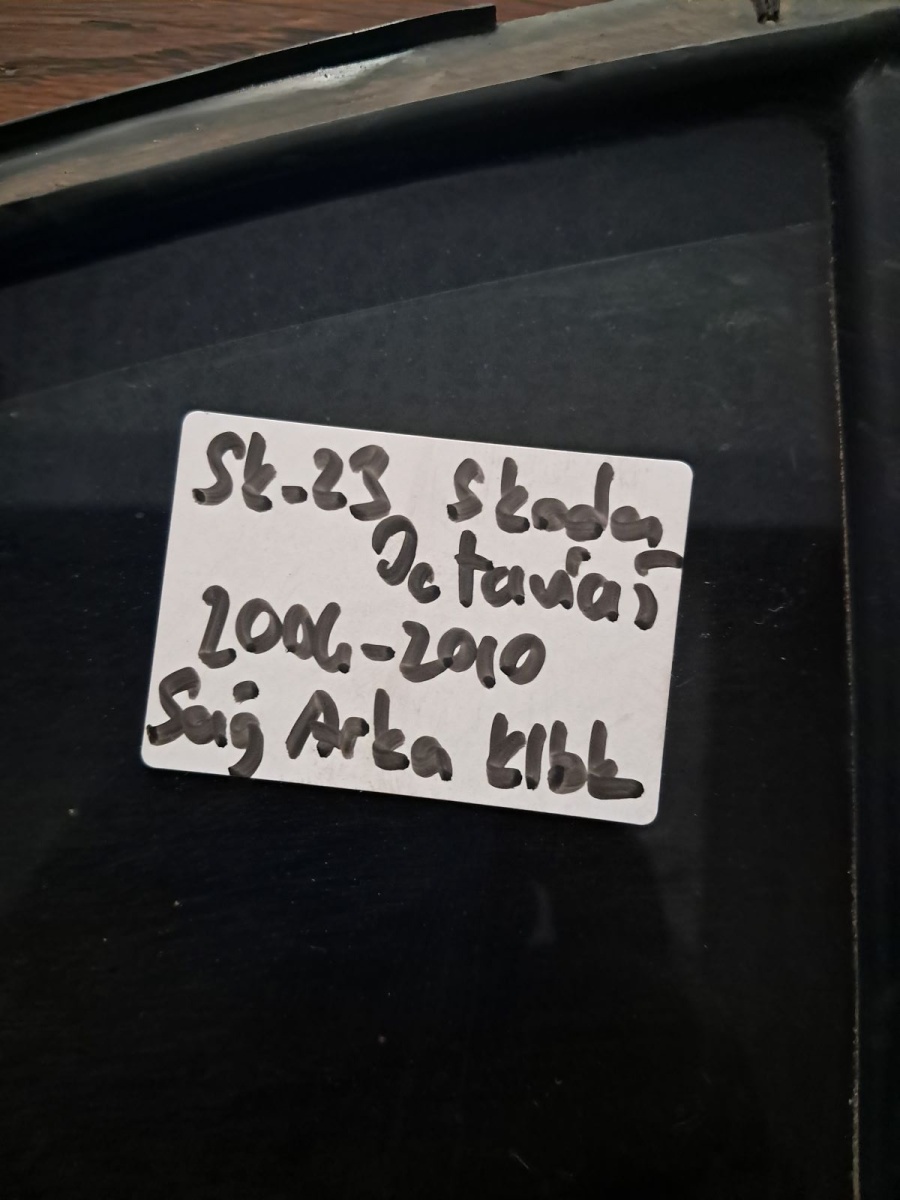 Sk-23 Skoda
Octavia5
2004-2010
Sağ Arka klbk